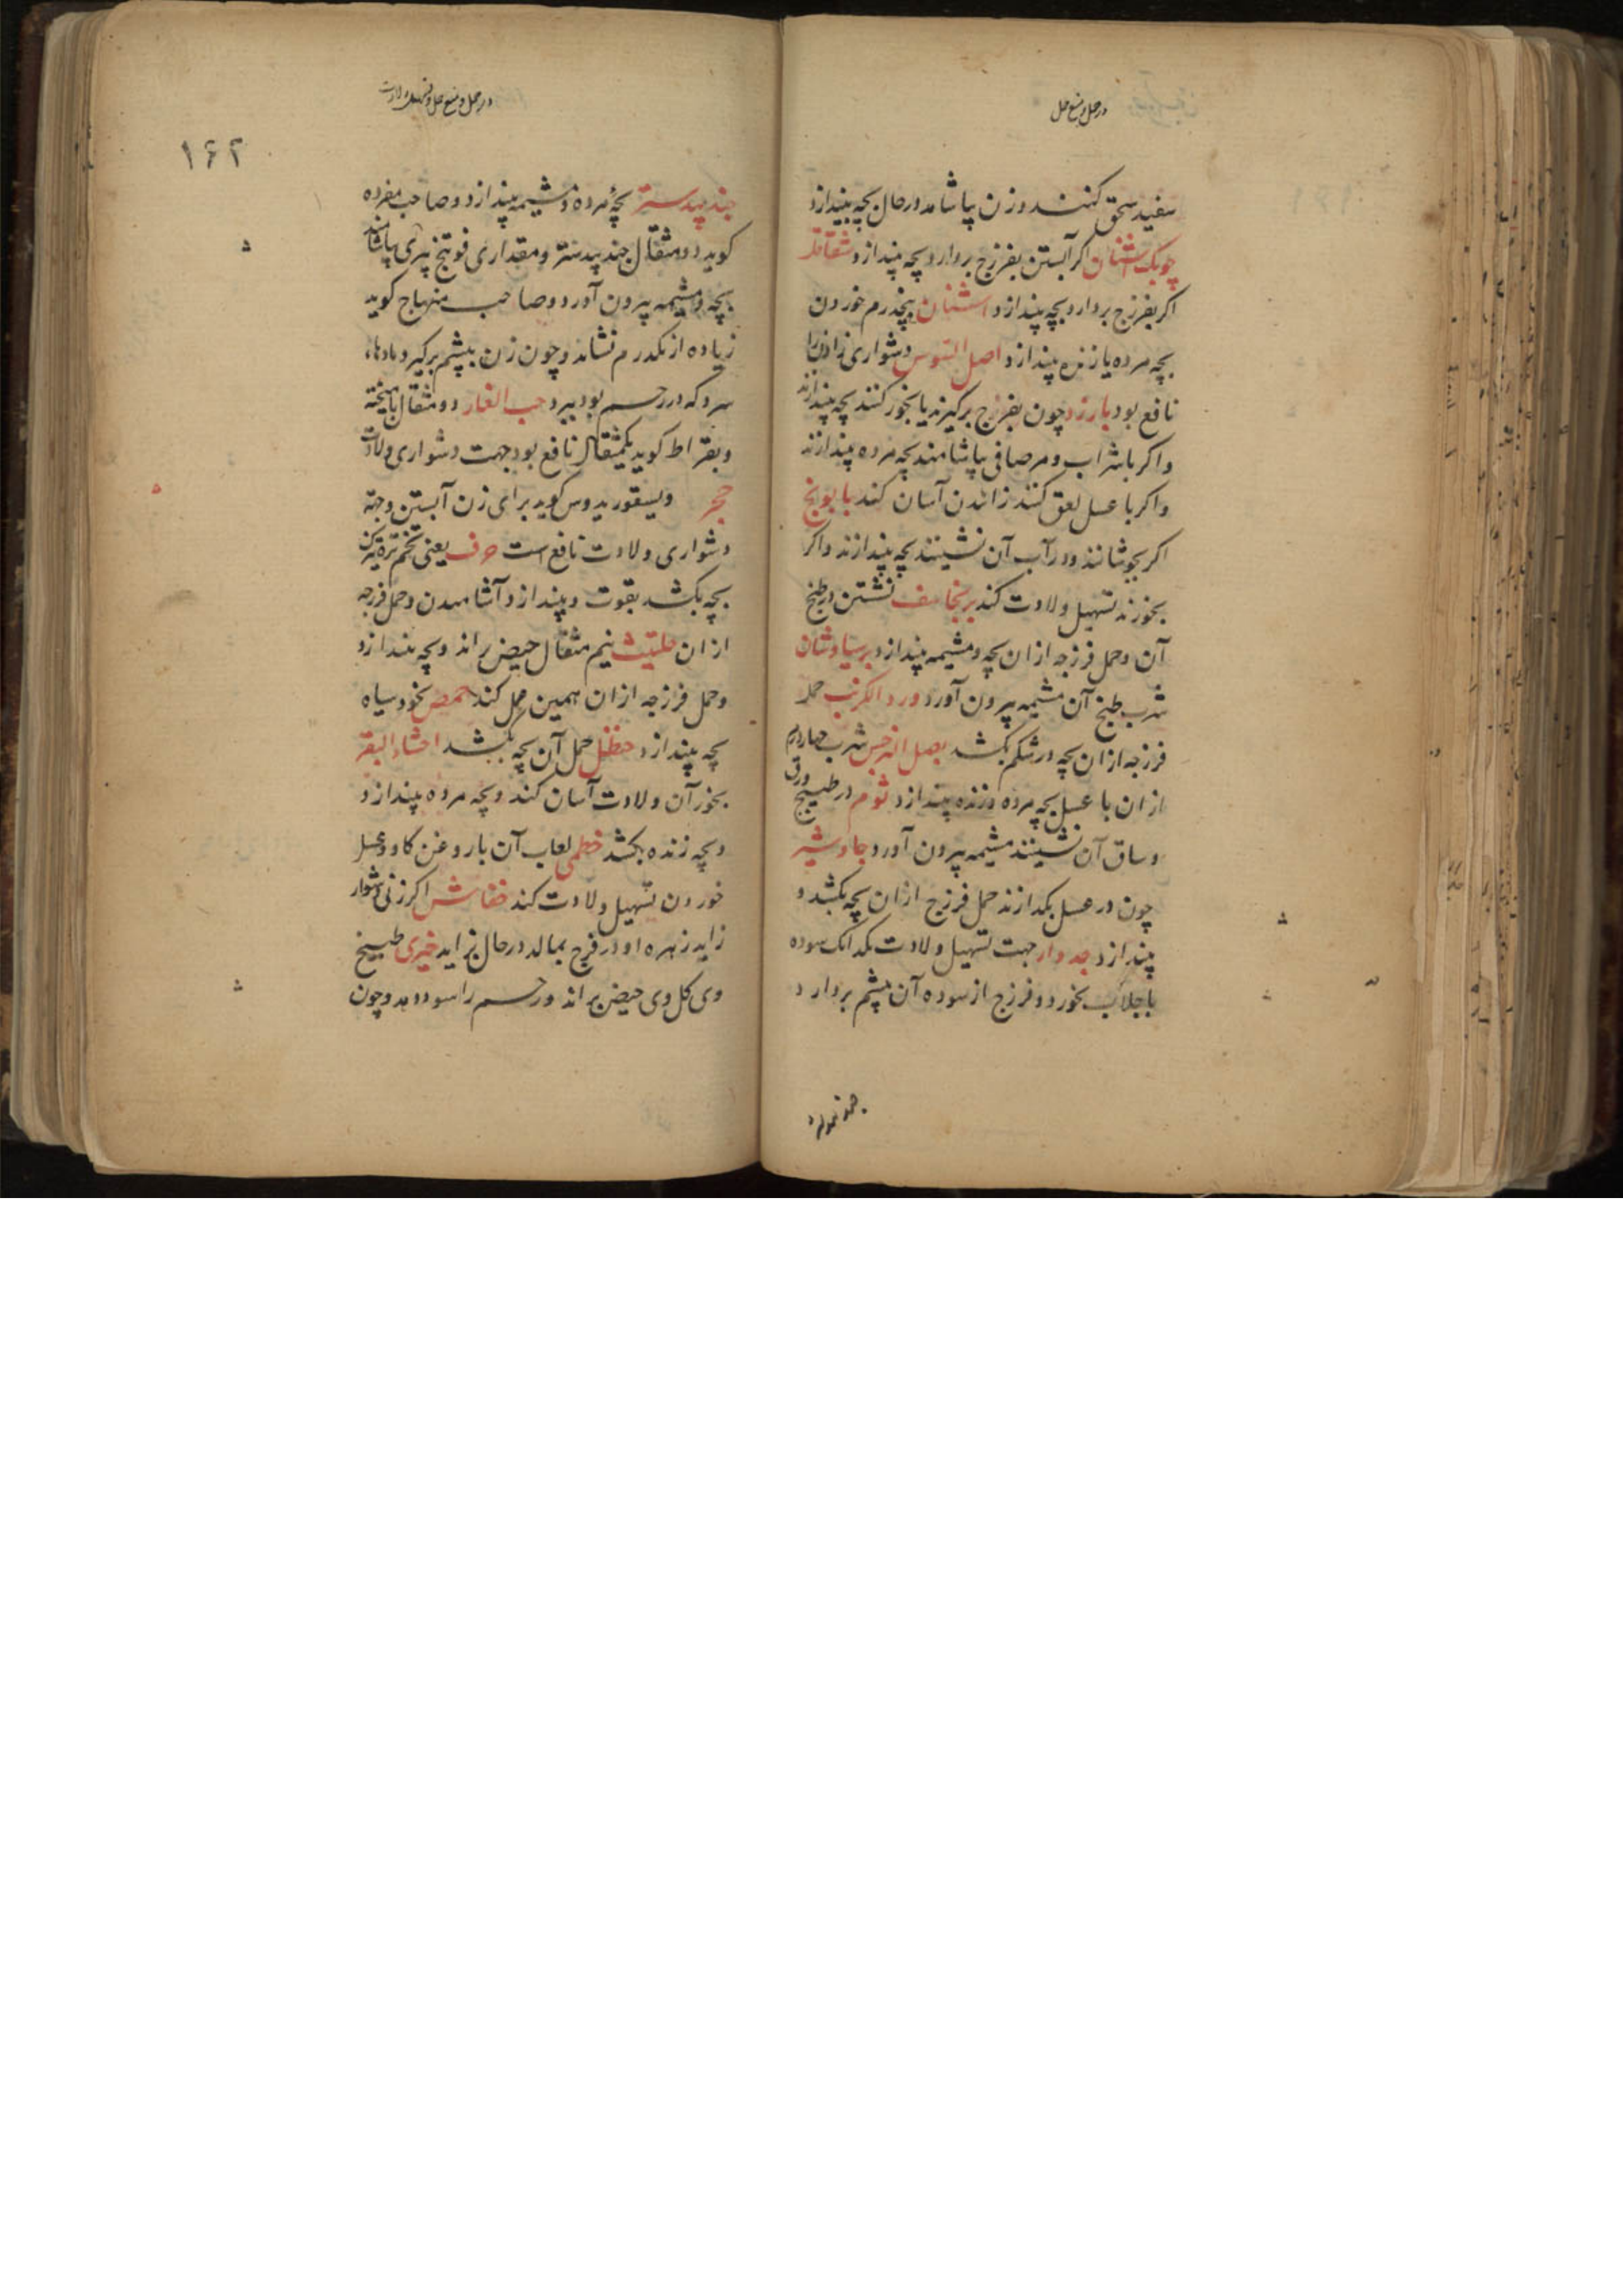 در حمل و منع حمل
سفید سحق کنند و زن بیاشامد در حال بچه بیندازد
چوبک اشنان اکر آبستن بفرزج بردارد بچه بیندازد شقاقل
اکر بفرزج بردارد بچه بیندازد اشنان پنجدرم خوردن
بچه مرده یا زنده بیندازد اصل السوس دشواری زادن را
نافع بود بارزد چون بفرزج برکیرند یا بخور کنند بچه بیندازند
واکر با شراب و مر صافی بیاشامند بچه مرده بیندازند
واکر با عسل لعق کنند زائیدن آسان کند بابونج
اکر بجوشانند و در آب آن نشینند بچه بیندازند واکر
بخورند تسهیل ولادت کند برنجاسف نشستن در طبخ
آن و حمل فرزجه ازان بچه و مشیمه بیندازد برسیاوشان
شرب طبخ آن مشیمه بیرون آورد ورد الکرنب حمل
فرزجه ازان بچه در شکم بکشد بصل النرجس شرب چهاردرم
ازان با عسل بچه مرده و زنده بیندازد ثوم در طبیخ ورق
وساق آن نشینند مشیمه بیرون آورد جاوشیر
چون در عسل بکدازند حمل فرزج ازان بچه بکشد و
بیندازد جدوار جهت تسهیل ولادت یکدانک سوده
با جلاب بخورد و فرزج از سوده آن بپشم بردارد
جند بیدستر
در حمل و منع حمل و تسهیل ولادت
۱۶۲
جند بیدستر بچهٔ مرده و مشیمه بیندازد وصاحب مفرده
کوید دو مثقال جند بیدستر و مقداری فوتنج بری بیاشامند
بچه و مشیمه بیرون آورد وصاحب منهاج کوید
زیاده از یکدرم نشاید و چون زن بپشم برکیرد بادهاء
سرد که در رحم بود ببرد حب الغار دو مثقال با میخته
وبقراط کوید یکمثقال نافع بود جهت دشواری ولادت
حجر ویسقوریدوس کوید برای زن آبستن وجهة
دشواری ولادت نافع است حرف یعنی تخم تره تیزک
بچه بکشد بقوت و بیندازد آشامیدن و حمل فرزجه
ازان حلتیت نیم مثقال حیض راند و بچه بیندازد
وحمل فرزجه ازان همین عمل کند حمص نخود سیاه
بچه بیندازد حنظل حمل آن بچه بکشد احشاء البقر
بخور آن ولادت آسان کند و بچه مرده بیندازد
و بچه زنده بکشد خطمی لعاب آن با روغن کاو وعسل
خوردن تسهیل ولادت کند خفاش اکر زنی دشوار
زاید زهره او در فرج بمالد در حال بزاید خیری طبیخ
وی کل وی حیض براند و رحم را سود دهد و چون